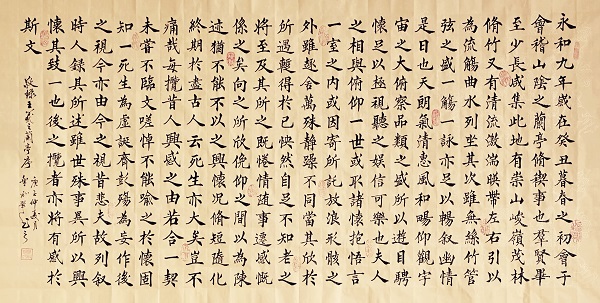 永和九年歲在癸丑暮春之初會于
會稽山陰之蘭亭脩稧事也群賢畢
至少長咸集此地有崇山峻嶺茂林
脩竹又有清流激湍暎帶左右引以
為流觴曲水列坐其次雖無絲竹管
弦之盛一觴一詠亦足以暢叙幽情
是日也天朗氣清惠風和暢仰觀宇
宙之大俯察品類之盛所以遊目騁
懷足以極視聽之娛信可樂也夫人
之相與俯仰一世或取諸懷抱悟言
一室之內或因寄所託放浪形骸之
外雖趣舍萬殊靜躁不同當其欣於
所遇暫得於己怏然自足不知老之
將至及其所之既惓情隨事遷感慨
係之矣向之所欣俛仰之間以為陳
迹猶不能不以之興懷況脩短隨化
終期於盡古人云死生亦大矣豈不
痛哉每攬昔人興感之由若合一契
未嘗不臨文嗟悼不能喻之於懷固
知一死生為虛誕齊彭殤為妄作後
之視今亦由今之視昔悲夫故列叙
時人錄其所述雖世殊事異所以興
懷其致一也後之攬者亦將有感於
斯文
王羲之蘭亭序